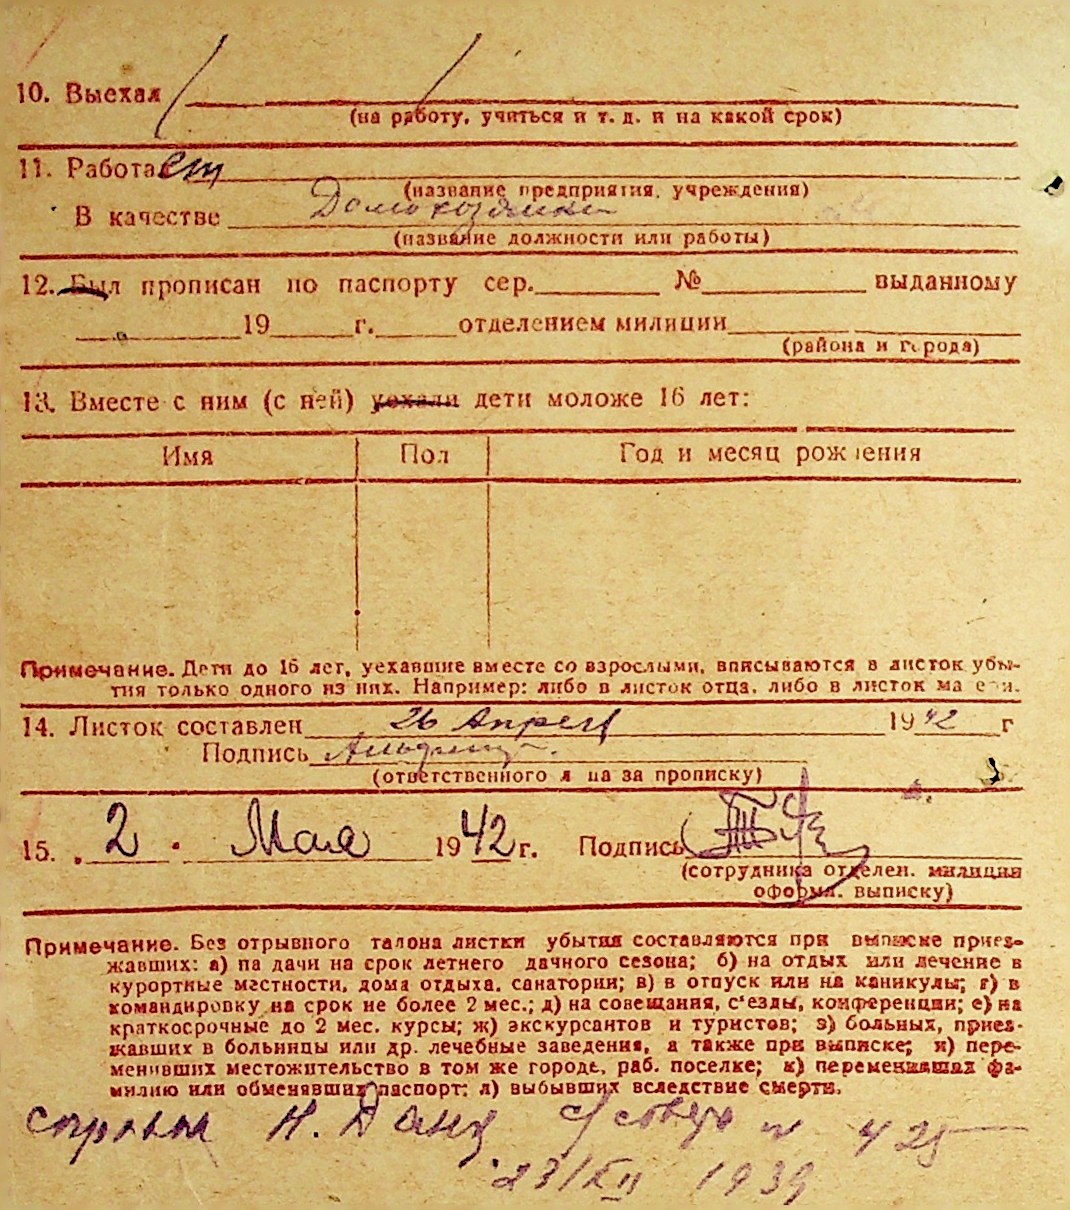 10. Выехал
(на работу, учиться и т. д. и на какой срок)
11. Работает
(название предприятия, учреждения)
В качестве Домохозяйки
(название должности или работы)
12. Был прописан по паспорту сер. № выданному
19 г. отделением милиции
(района и города)
13. Вместе с ним (с ней) уехали дети моложе 16 лет:
Имя Пол Год и месяц рождения
Примечание. Дети до 16 лет, уехавшие вместе со взрослыми, вписываются в листок убы-
тия только одного из них. Например: либо в листок отца, либо в листок матери.
14. Листок составлен 26 Апреля 1942 г
Подпись
(ответственного лица за прописку)
15. 2 Мая 1942 г. Подпись
(сотрудника отделен. милиции
оформ. выписку)
Примечание. Без отрывного талона листки убытия составляются при выписке приез-
жавших: а) на дачи на срок летнего дачного сезона; б) на отдых или лечение в
курортные местности, дома отдыха, санатории; в) в отпуск или на каникулы; г) в
командировку на срок не более 2 мес.; д) на совещания, с'езды, конференции; е) на
краткосрочные до 2 мес. курсы; ж) экскурсантов и туристов; з) больных, приез-
жавших в больницы или др. лечебные заведения, а также при выписке; и) пере-
менивших местожительство в том же городе, раб. поселке; к) переменивших фа-
милию или обменявших паспорт; л) выбывших вследствие смерти.
справка Н. с/совета № 425
23/XII 1939